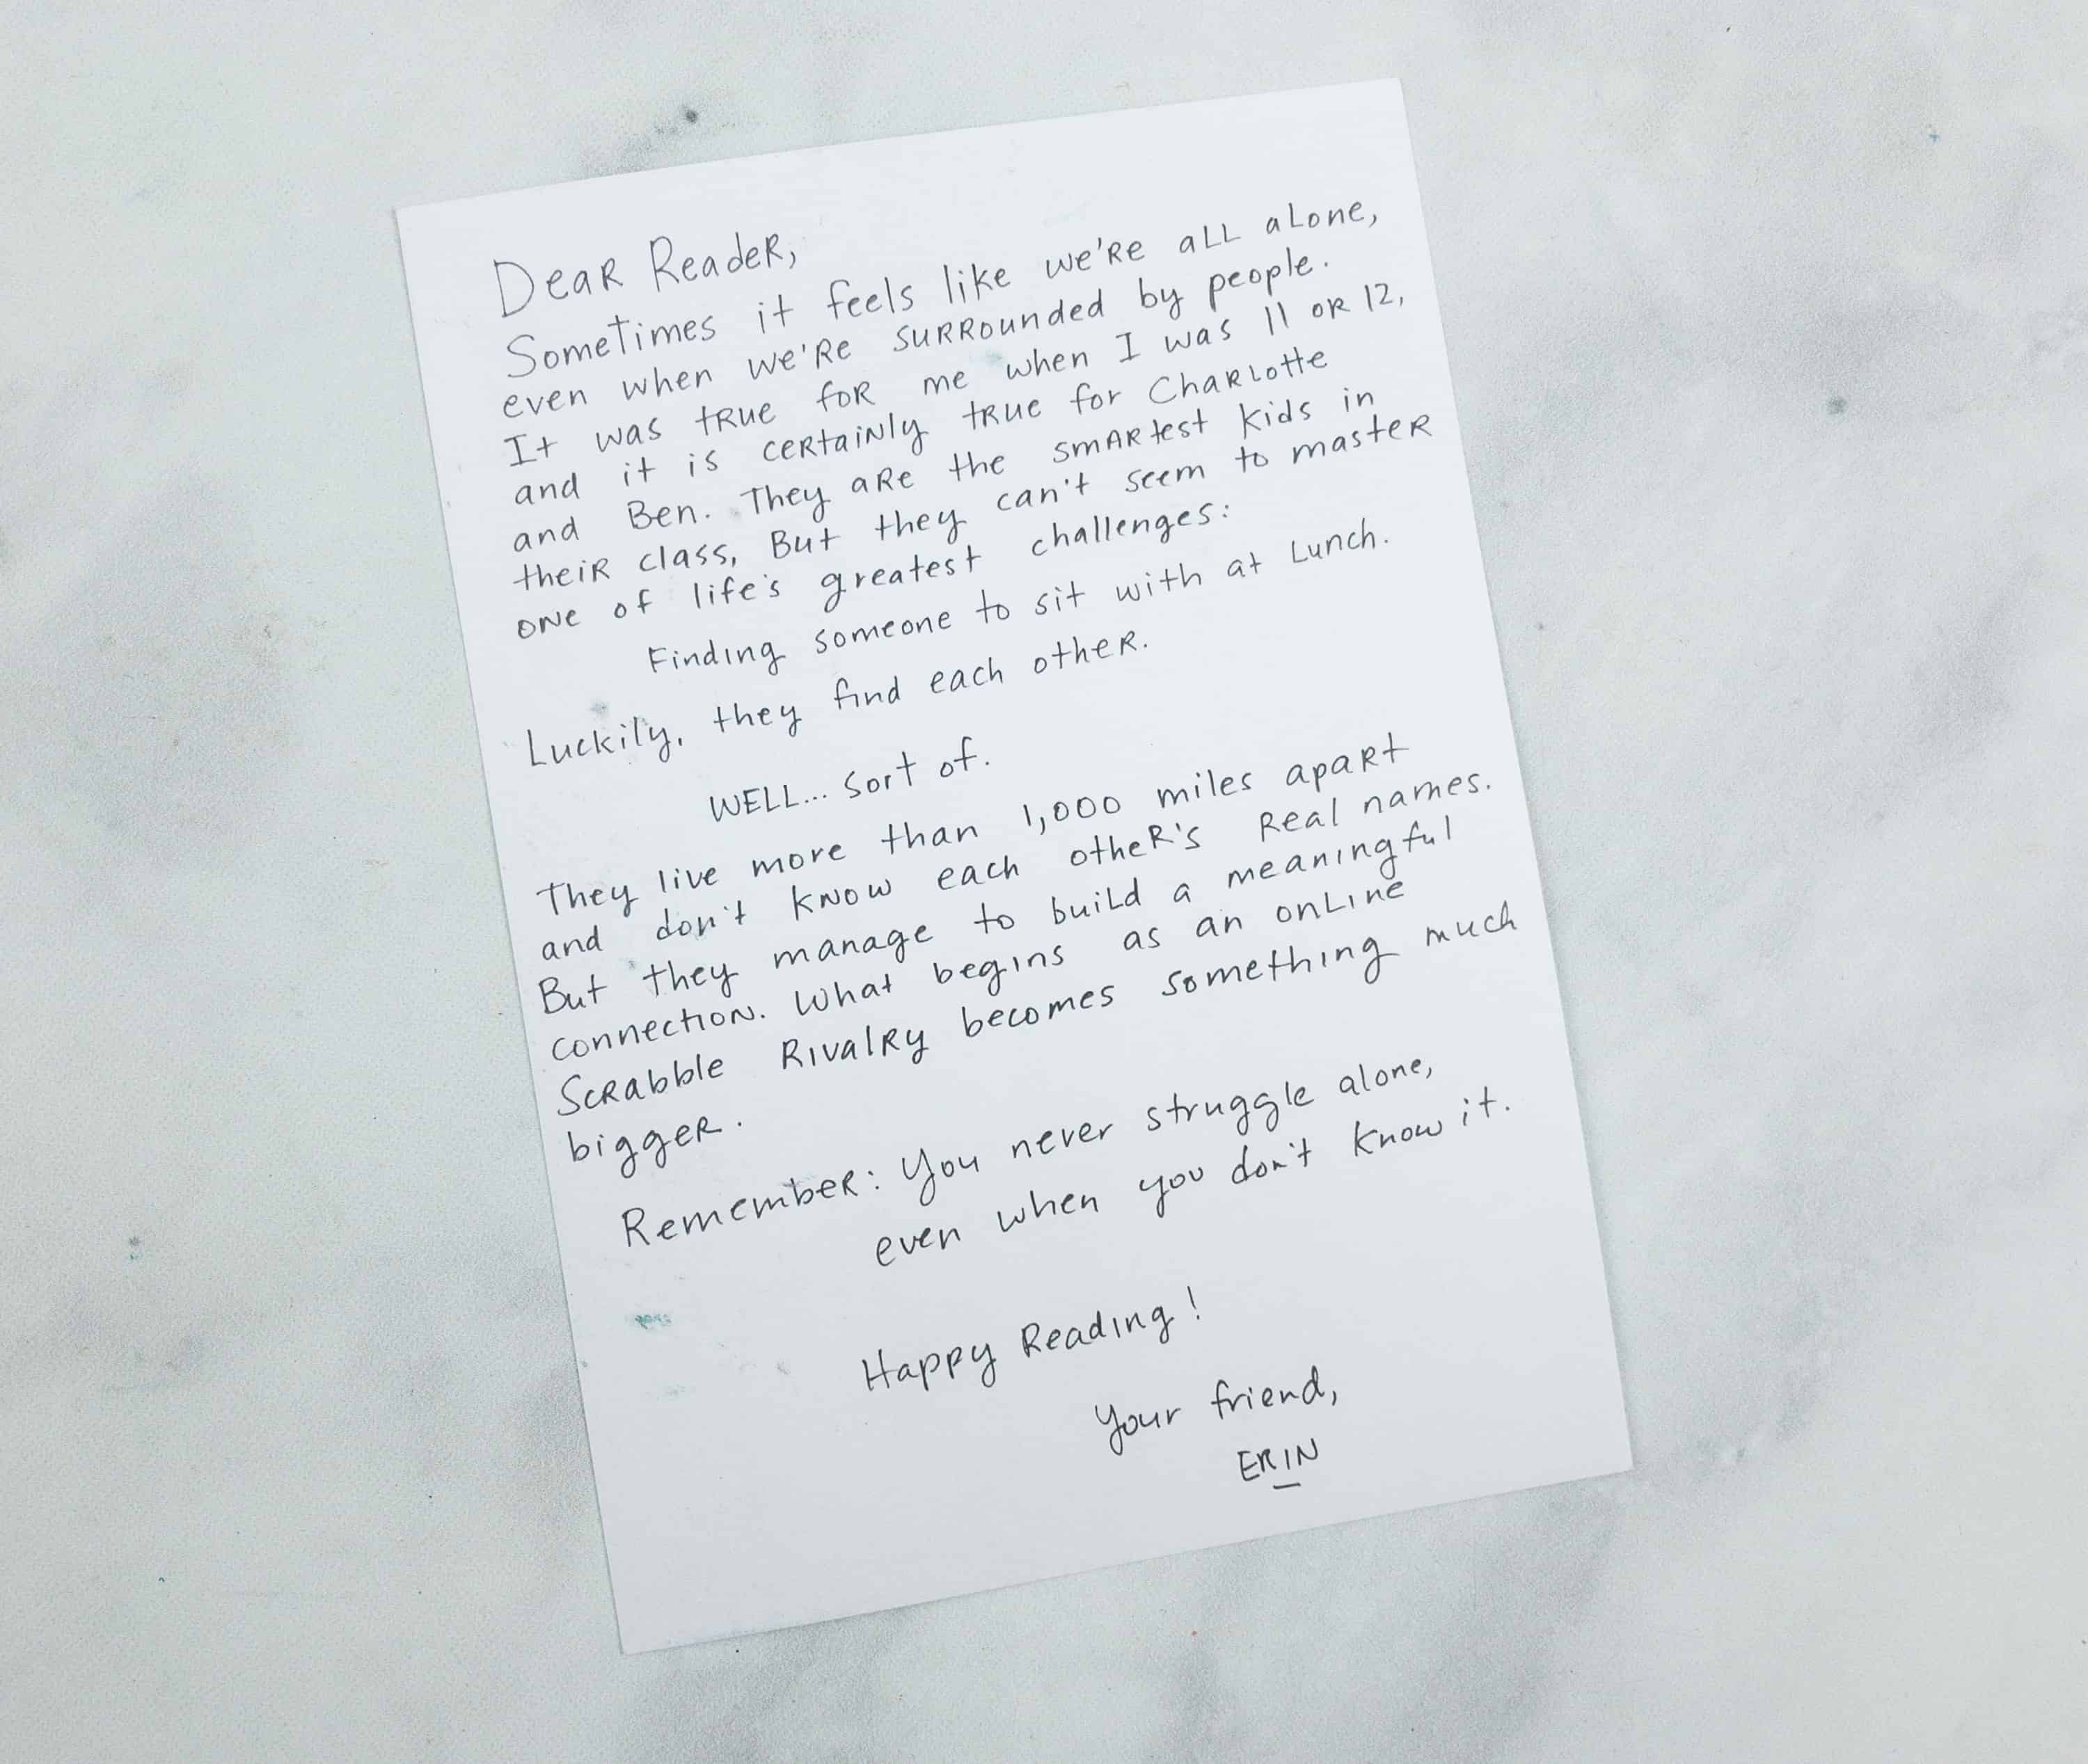 Dear Reader,
Sometimes it feels like we're all alone,
even when we're surrounded by people.
It was true for me when I was 11 or 12,
and it is certainly true for Charlotte
and Ben. They are the smartest kids in
their class, But they can't seem to master
one of life's greatest challenges:
Finding someone to sit with at Lunch.
Luckily, they find each other.
WELL... sort of.
They live more than 1,000 miles apart
and don't know each other's real names.
But they manage to build a meaningful
connection. What begins as an online
Scrabble Rivalry becomes something much
bigger.
Remember: You never struggle alone,
even when you don't know it.
Happy Reading!
Your friend,
ERIN